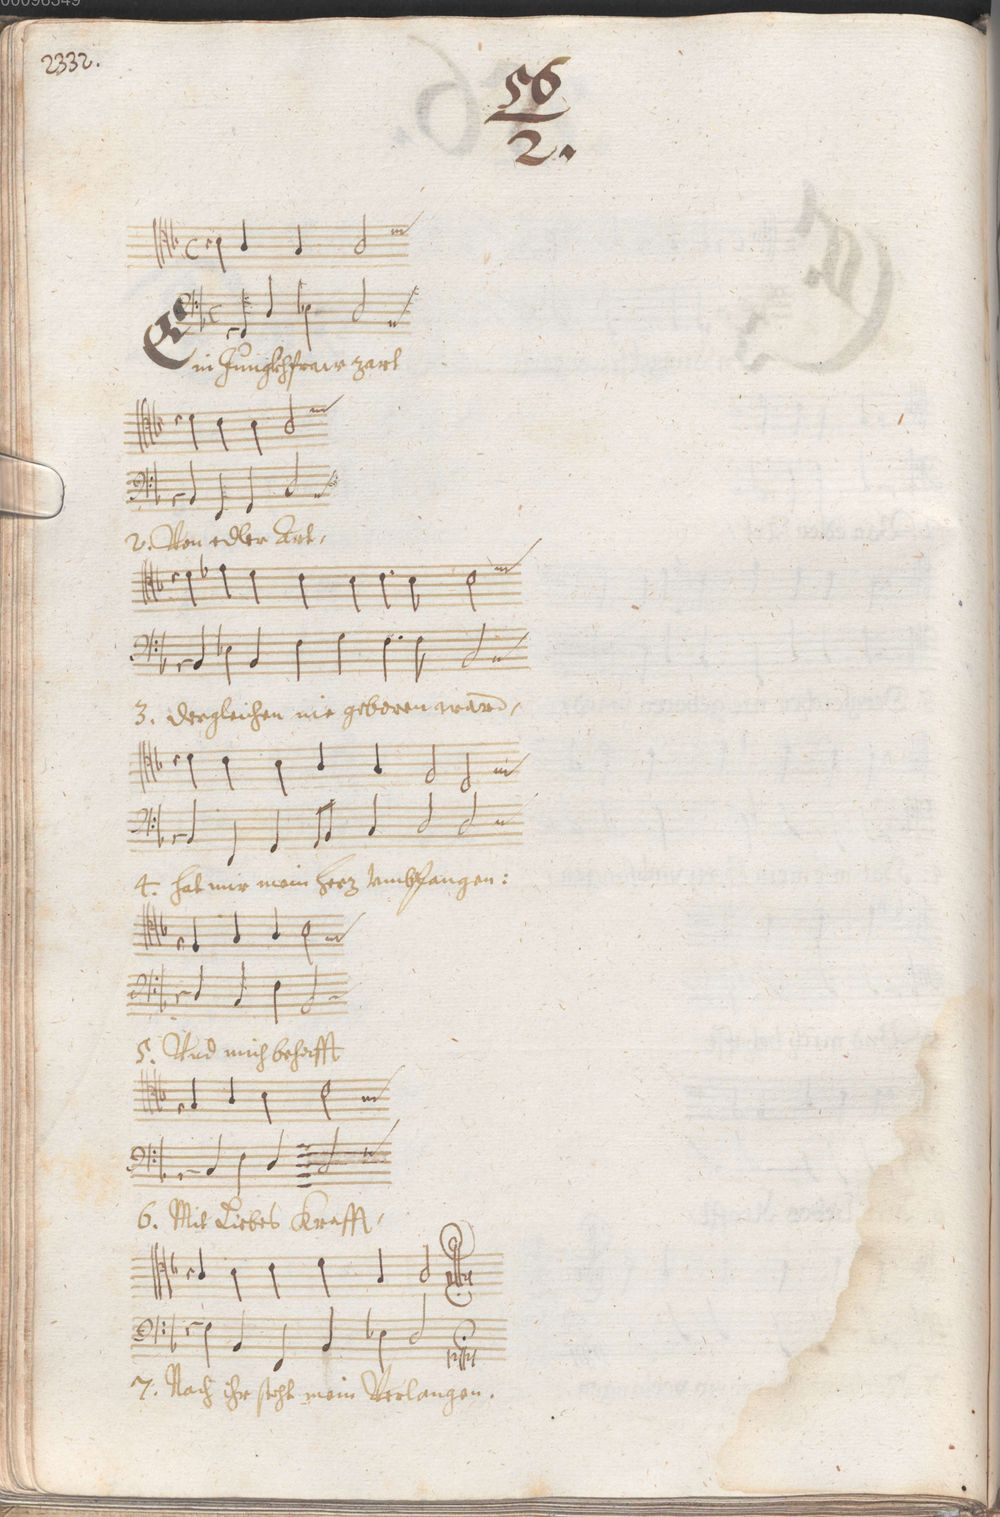 00098349
2332.
56
2.
Ein Jungkhfraw zart
2. Von edler Art,
3. dergleichen nie geboren ward,
4. hat mir mein herz umbfangen:
5. Und mich behafft
6. Mit Liebes Krafft,
7. Nach ihr steht mein Verlangen.